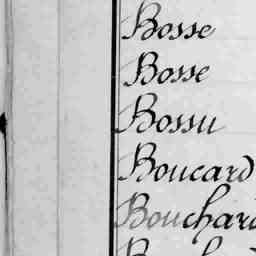 Bosse
Bosse
Bossu
Boucard
Bouchard